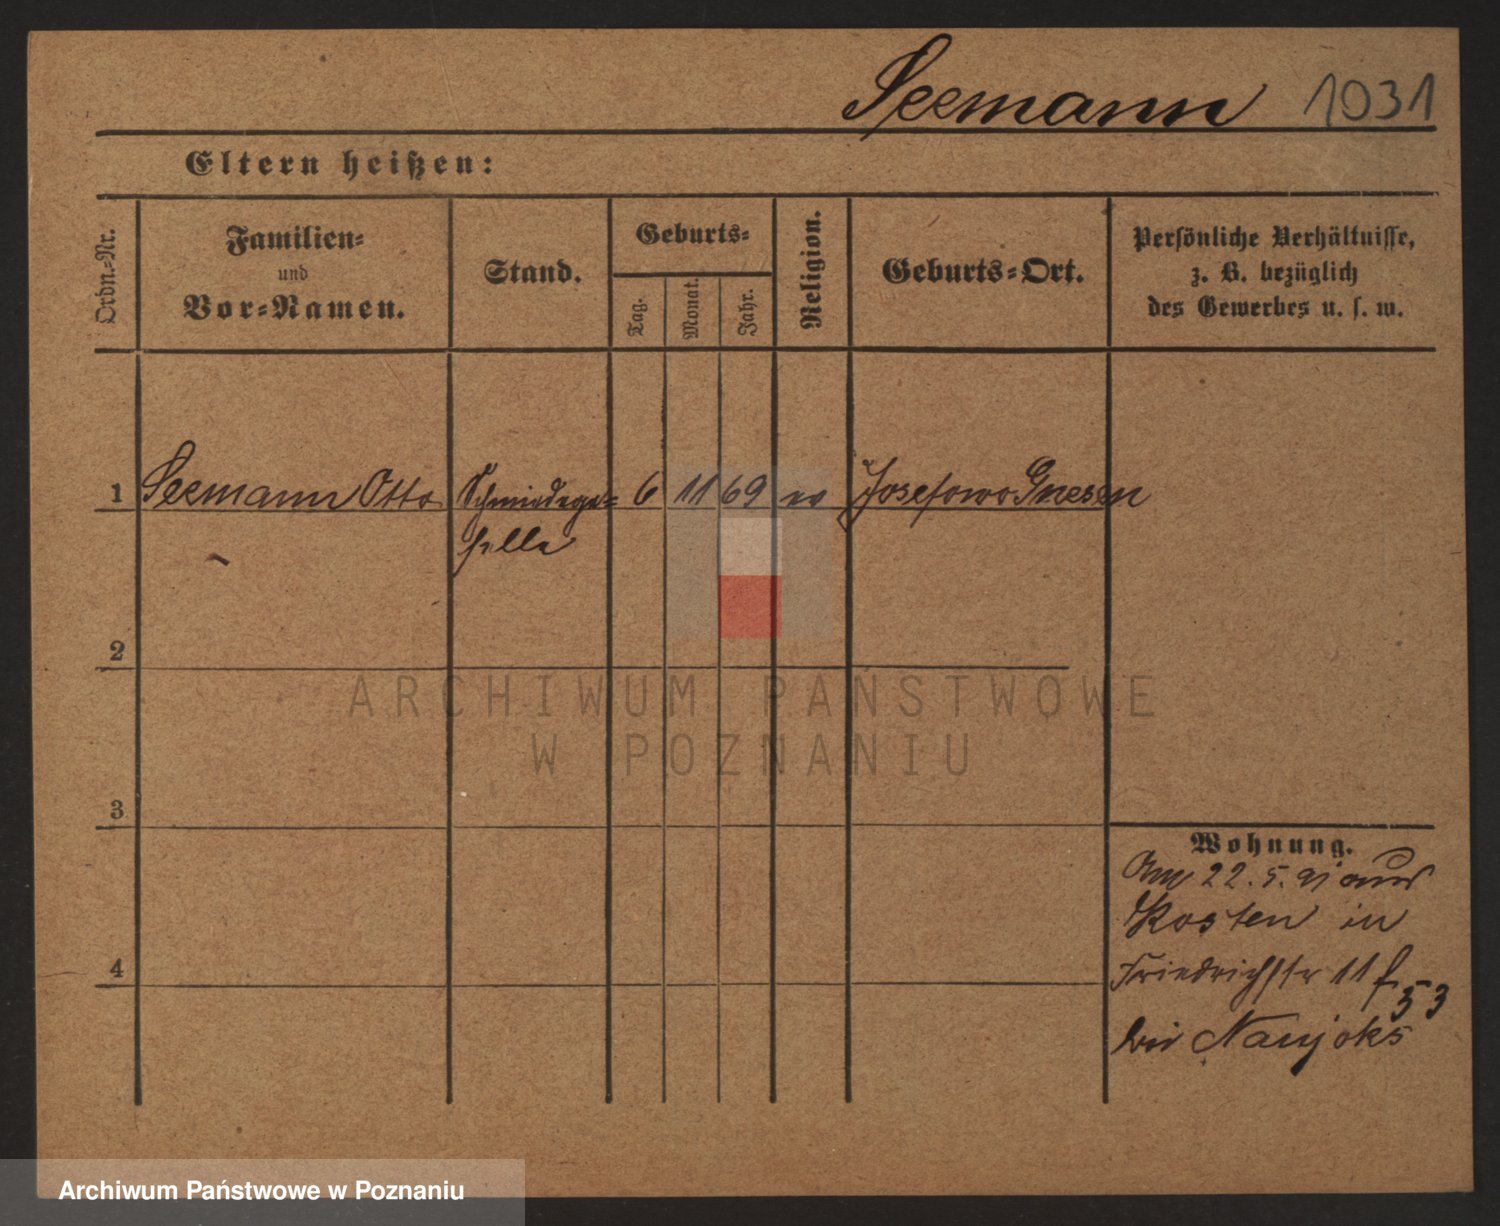 Seemann 1031
Eltern heißen:
Ordn.=Nr.
Familien=
und
Vor=Namen.
Stand.
Geburts=
Tag.
Monat.
Jahr.
Religion.
Geburts=Ort.
Persönliche Verhältnisse,
z. B. bezüglich
des Gewerbes u. s. w.
1 Seemann Otto Schmiedege= 6 11 69 ev Josefowo Gnesen
selle
2
ARCHIWUM PAŃSTWOWE
W POZNANIU
3
Wohnung.
Am 22.5.91 aus
Kosten in
4
Friedrichstr 11 f
53
bei Naujoks
Archiwum Państwowe w Poznaniu